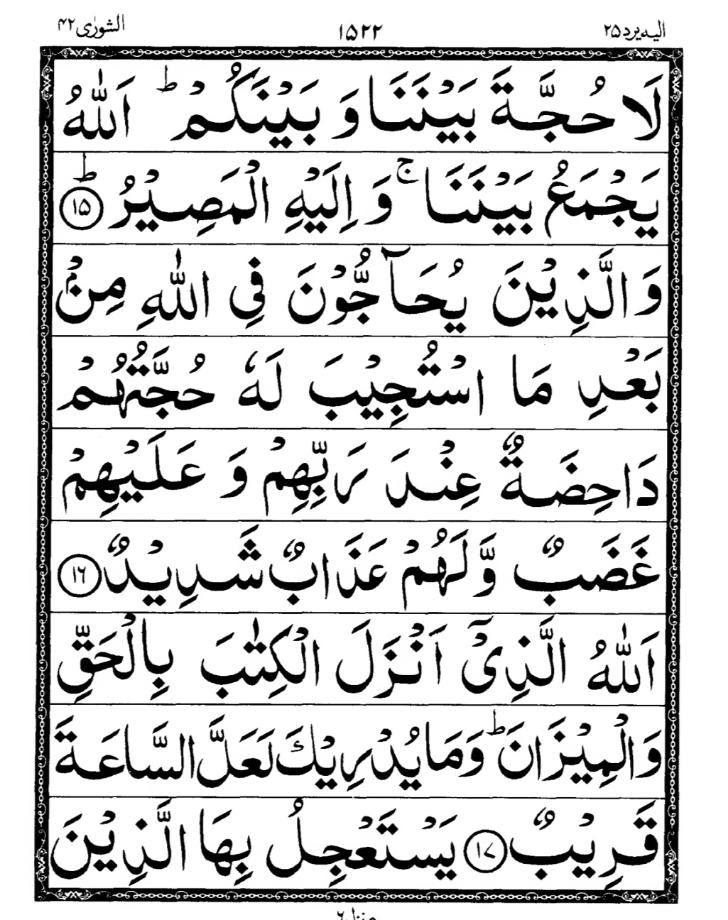 الشورٰى ۴۲ ۱۵۲۲ اليه يرد ۲۵
لَا حُجَّةَ بَيْنَنَا وَ بَيْنَكُمْ ؕ اَللّٰهُ
يَجْمَعُ بَيْنَنَا ۚ وَ اِلَيْهِ الْمَصِيْرُ ؕ ﴿۱۵﴾
وَالَّذِيْنَ يُحَآجُّوْنَ فِي اللّٰهِ مِنْۢ
بَعْدِ مَا اسْتُجِيْبَ لَهٗ حُجَّتُهُمْ
دَاحِضَةٌ عِنْدَ رَبِّهِمْ وَ عَلَيْهِمْ
غَضَبٌ وَّلَهُمْ عَذَابٌ شَدِيْدٌ ﴿۱۶﴾
اَللّٰهُ الَّذِيْٓ اَنْزَلَ الْكِتٰبَ بِالْحَقِّ
وَالْمِيْزَانَ ؕ وَمَا يُدْرِيْكَ لَعَلَّ السَّاعَةَ
قَرِيْبٌ ﴿۱۷﴾ يَسْتَعْجِلُ بِهَا الَّذِيْنَ